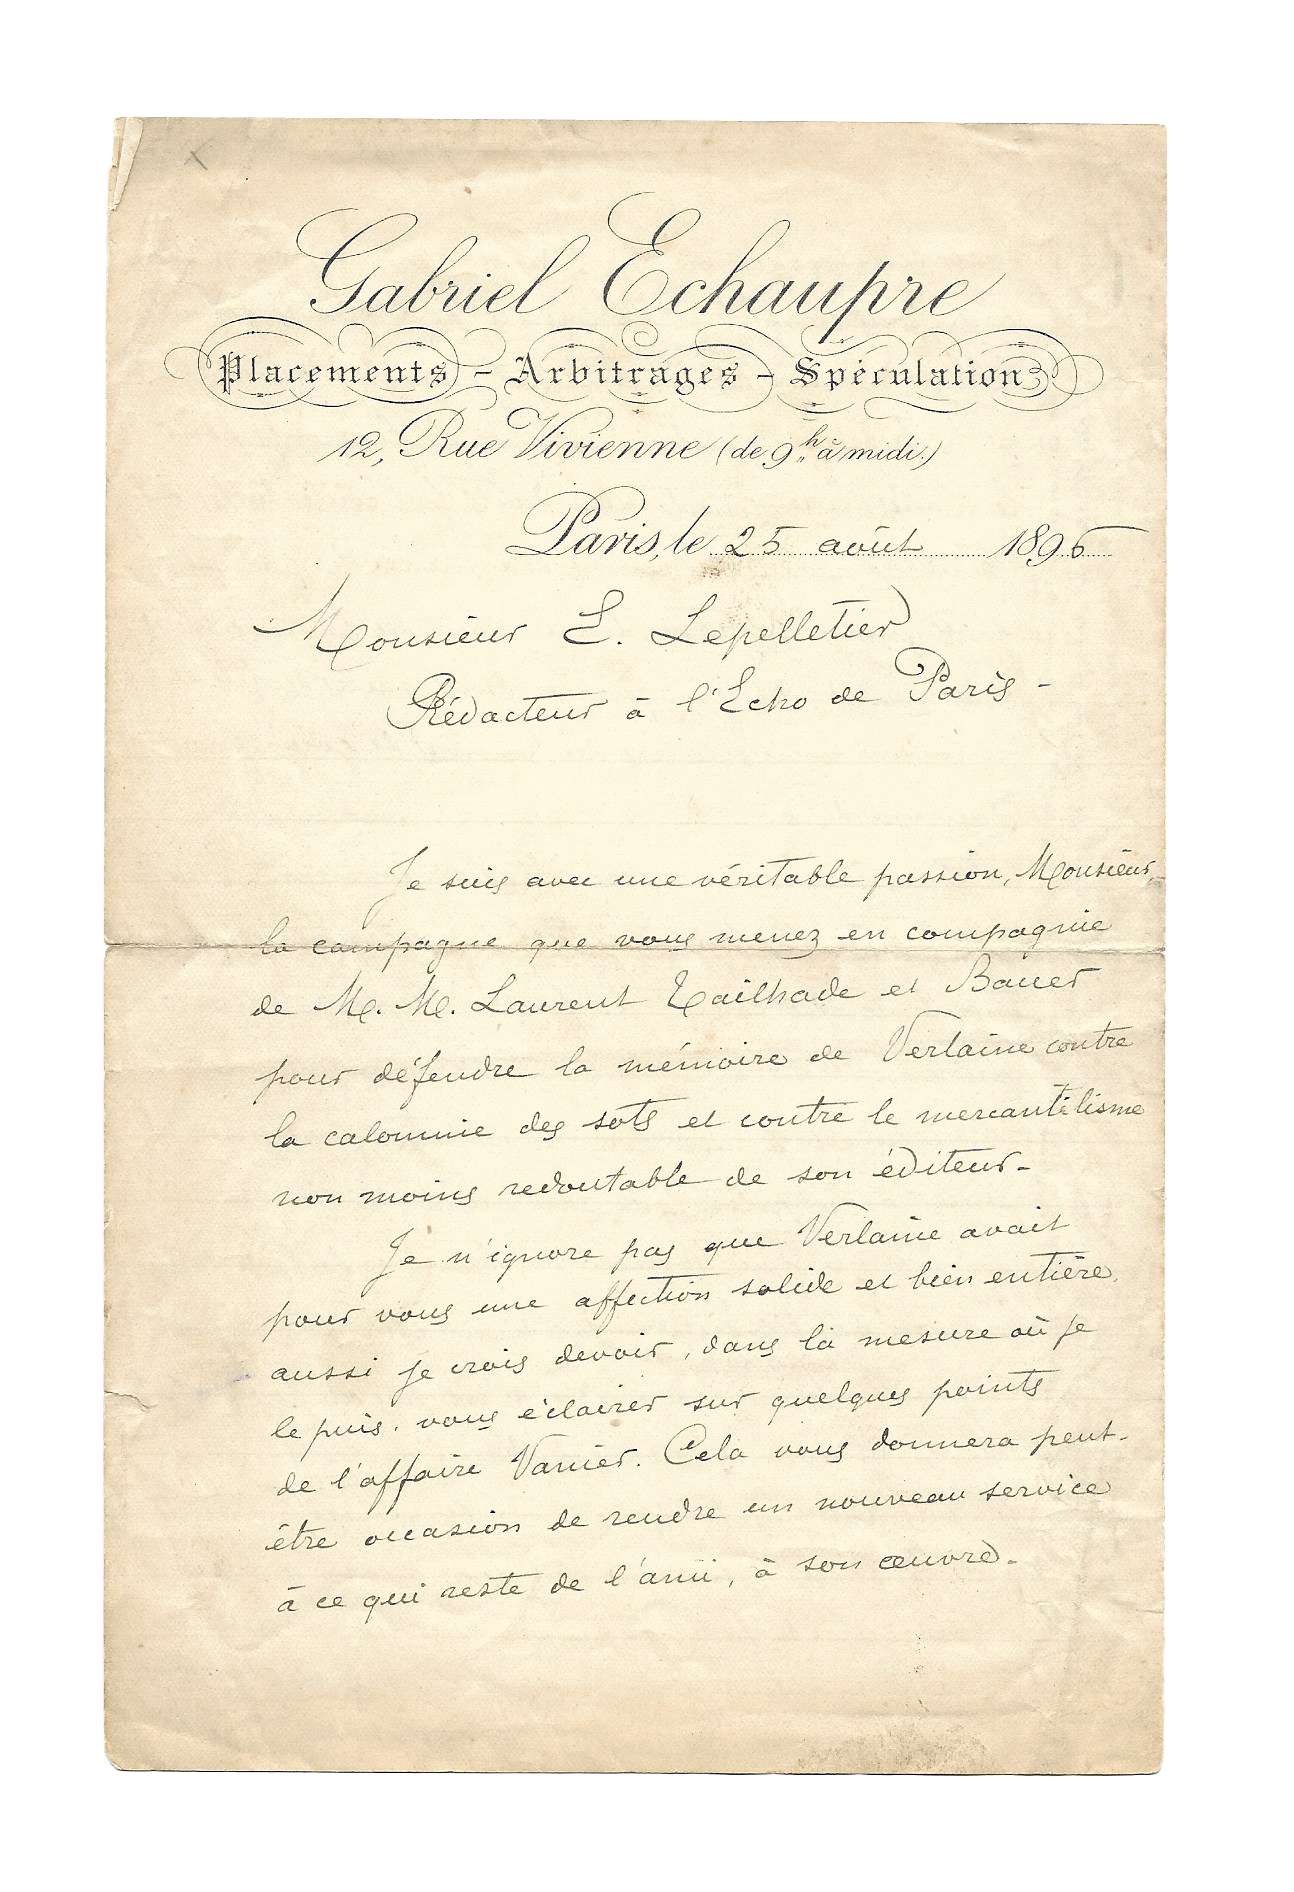 Gabriel Echaupre
Placements - Arbitrages - Spéculation
12, Rue Vivienne (de 9h à midi.)
Paris, le 25 août 1896
Monsieur E. Lepelletier
Rédacteur à l'Echo de Paris -
Je suis avec une véritable passion, Monsieur,
la campagne que vous menez en compagnie
de M. M. Laurent Tailhade et Bauer
pour défendre la mémoire de Verlaine contre
la calomnie des sots et contre le mercantilisme
non moins redoutable de son éditeur -
Je n'ignore pas que Verlaine avait
pour vous une affection solide et bien entière,
aussi je crois devoir, dans la mesure où je
le puis, vous éclairer sur quelques points
de l'affaire Vanier. Cela vous donnera peut-
être occasion de rendre un nouveau service
à ce qui reste de l'ami, à son œuvre -